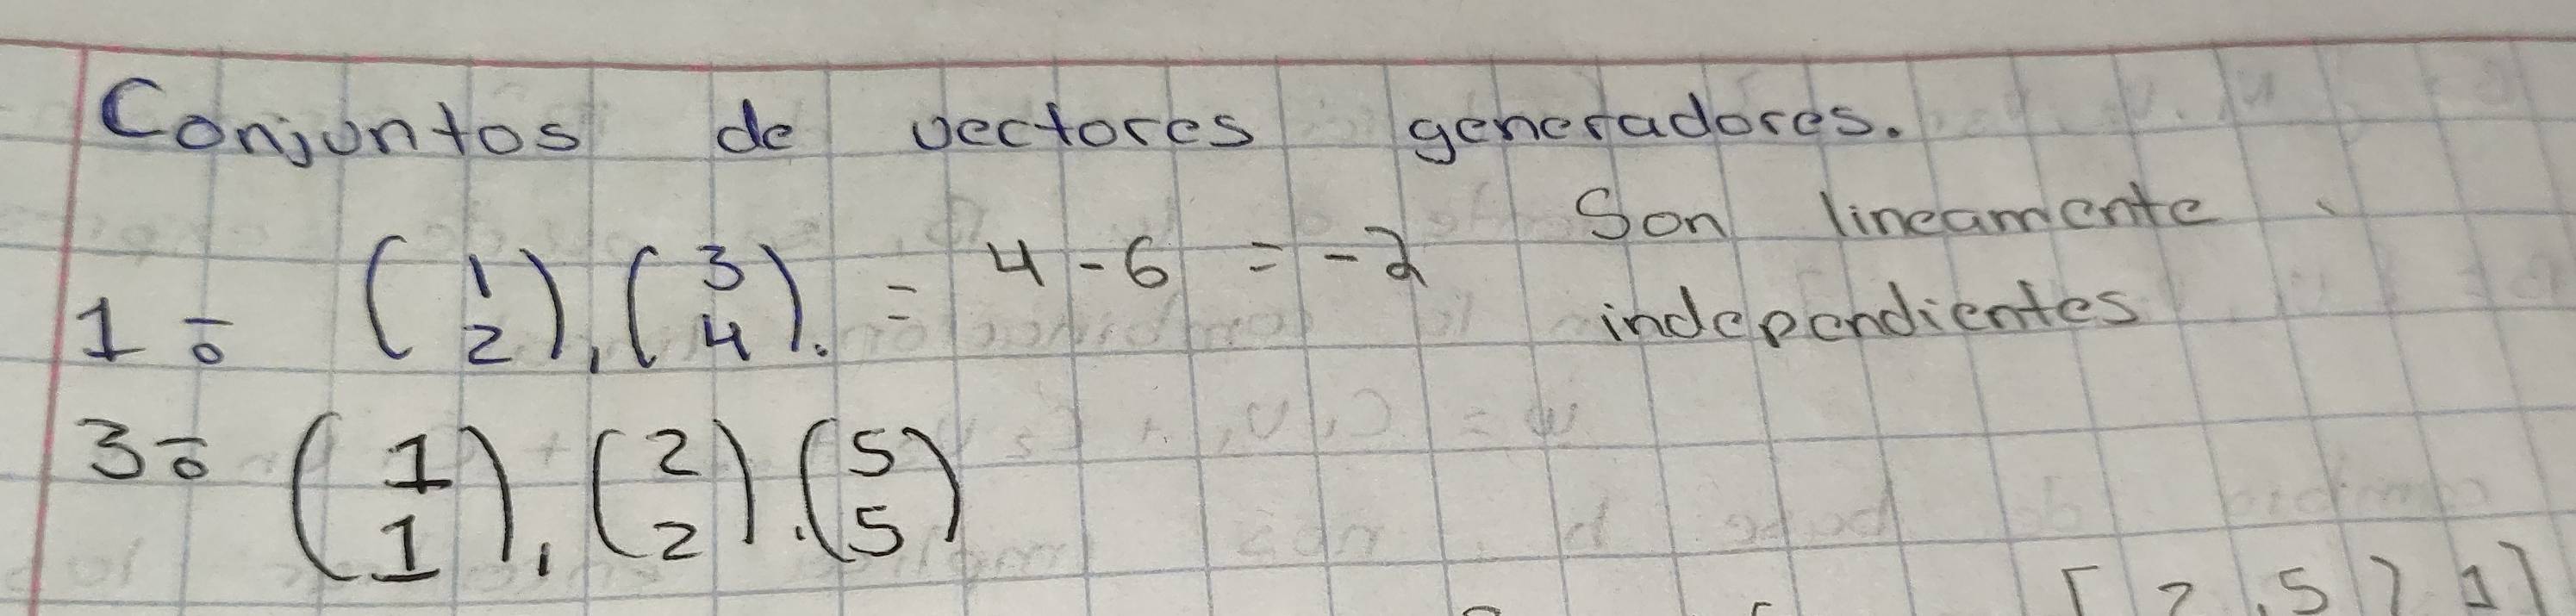 Conjuntos de vectores generadores.
1÷ (1 2), (3 4). = 4 - 6 = -2 Son lineamente
independientes
3÷ (1 1), (2 2), (5 5)